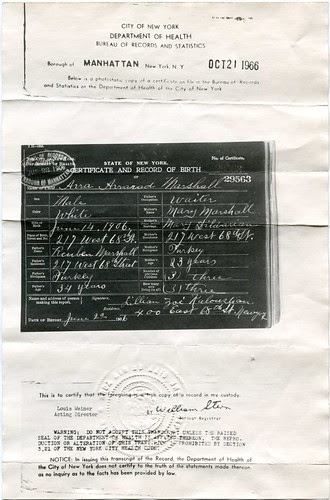 CITY OF NEW YORK
DEPARTMENT OF HEALTH
BUREAU OF RECORDS AND STATISTICS
Borough of MANHATTAN New York, N.Y. OCT 21 1966
Below is a photostatic copy of a certificate on file in the Bureau of Records
and Statistics of the Department of Health of the City of New York
STATE OF NEW YORK
No. of Certificate,
CERTIFICATE AND RECORD OF BIRTH
29563
Marshall
Sex Male Father's Occupation Waiter
Color White Mary Marshall
June 14, 1906 Mary
217 West 68th St. 217 West 68th St.
Reuben Marshall Turkey
217 West 68th Street 23 years
Turkey 3 three
34 years 3 three
Name and address of person making this report Signature, Lillian Zoé
Residence, 400 East
DATE OF REPORT, June 22 190
This is to certify that the foregoing is a true copy of a record in my custody.
Louis Weiner
Acting Director
BY William Stein
Borough Registrar
WARNING: DO NOT ACCEPT THIS TRANSCRIPT UNLESS THE RAISED
SEAL OF THE DEPARTMENT OF HEALTH IS AFFIXED THEREON. THE REPRO-
DUCTION OR ALTERATION OF THIS TRANSCRIPT IS PROHIBITED BY SECTION
3.21 OF THE NEW YORK CITY HEALTH CODE.
NOTICE: In issuing this transcript of the Record, the Department of Health of
the City of New York does not certify to the truth of the statements made thereon,
as no inquiry as to the facts has been provided by law.